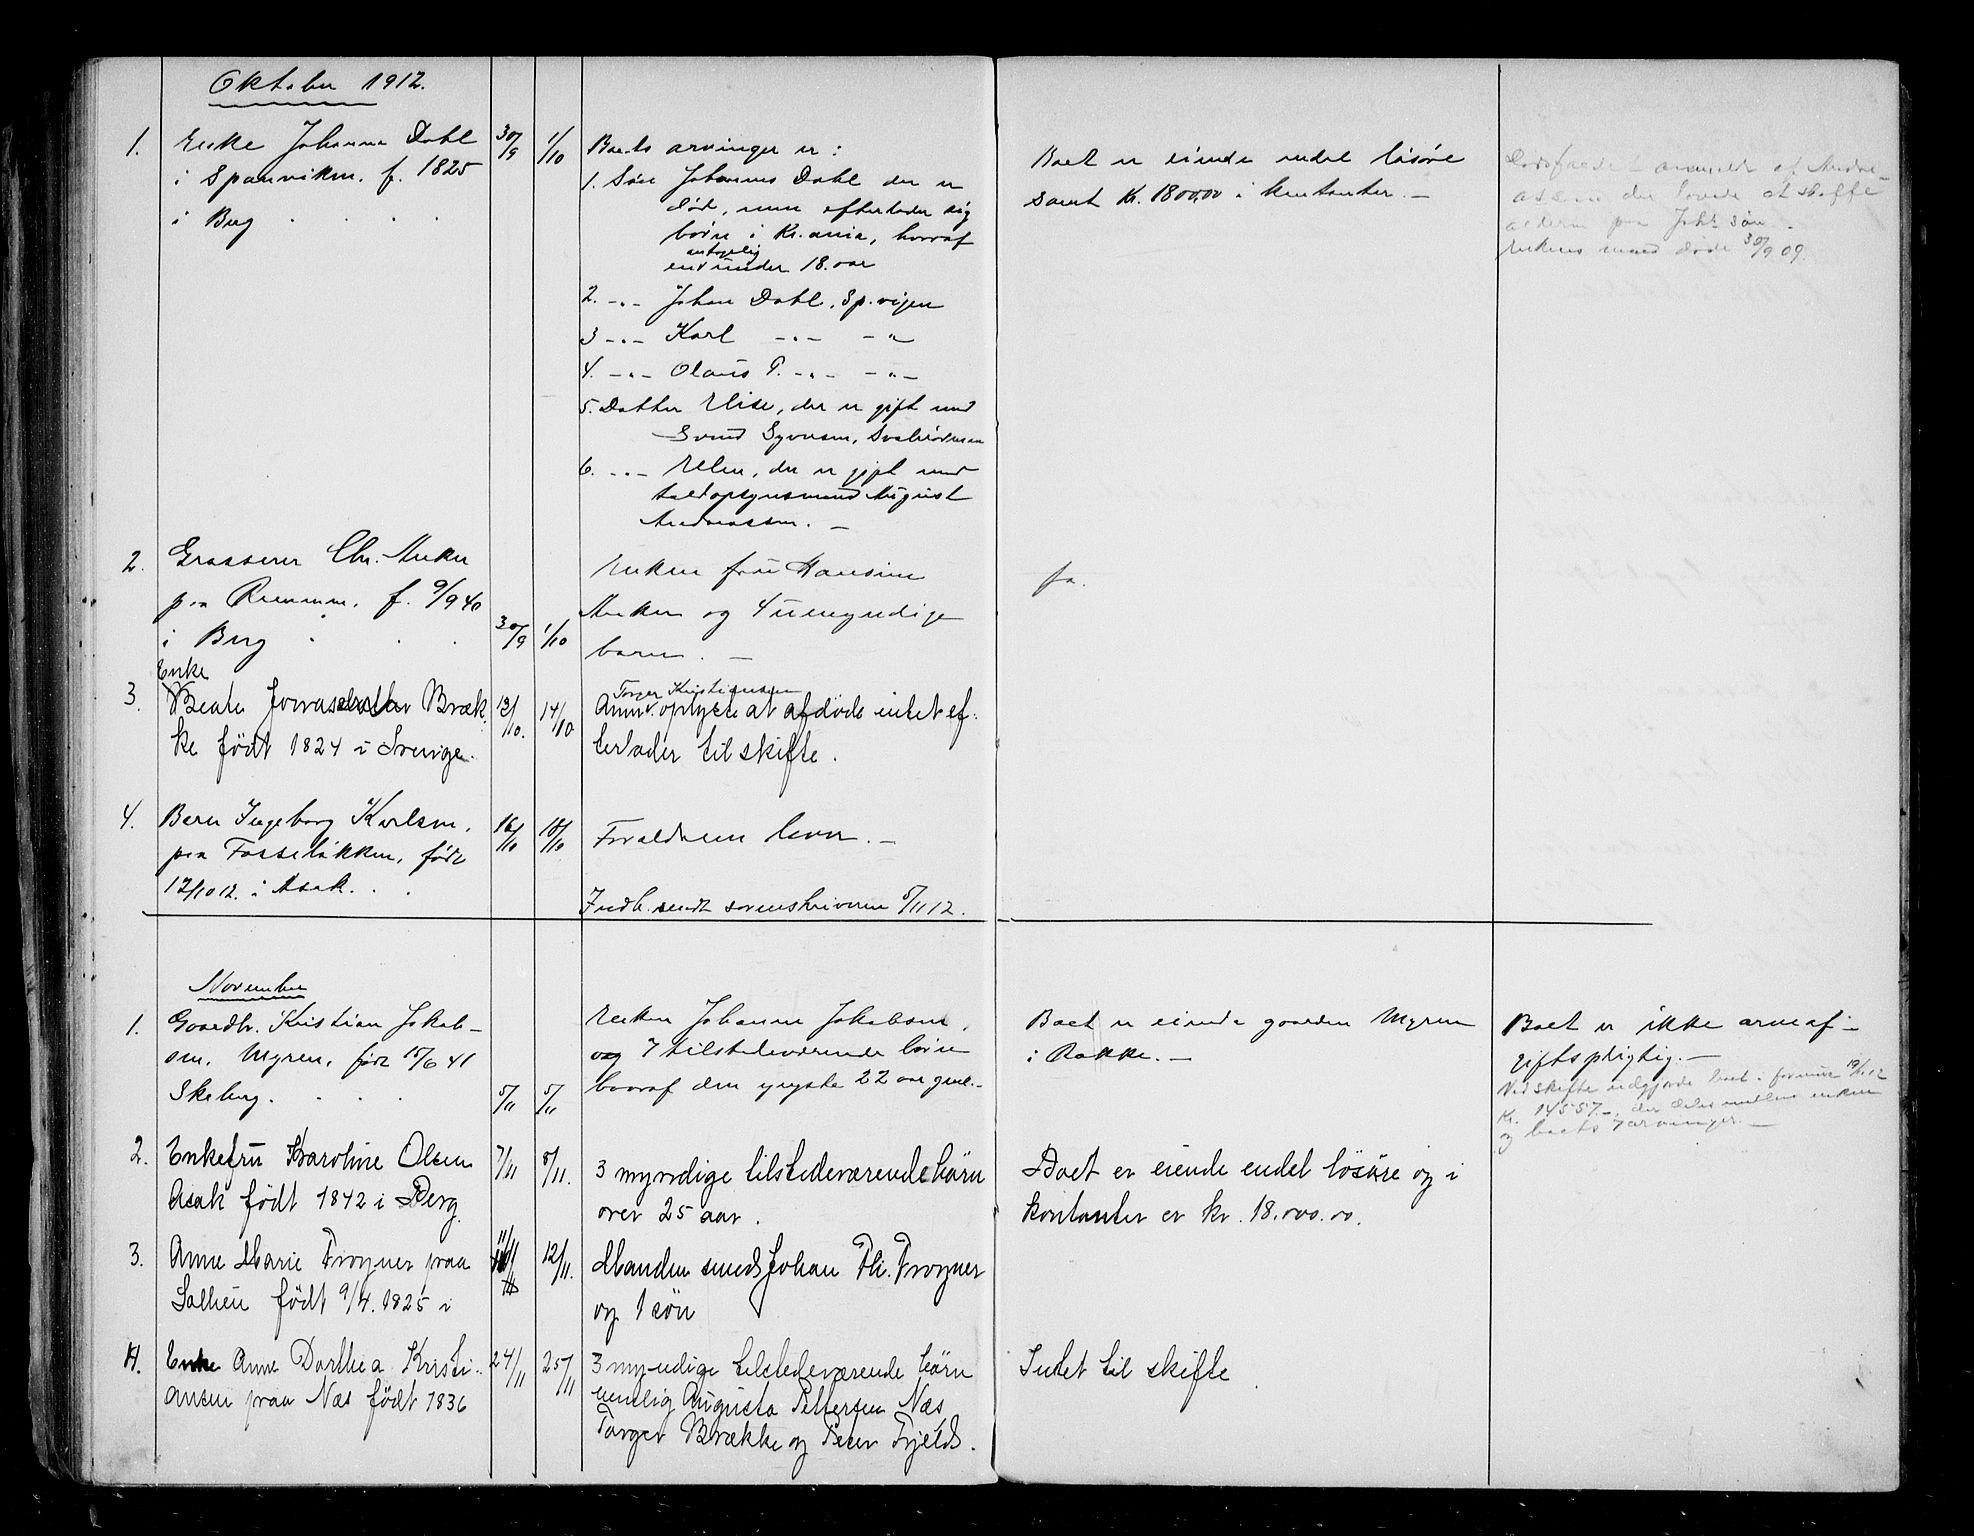 Oktober 1912.
1. Enke Johanne Dahl
i Sponviken. f. 1825
i Berg . . . .
30/9 1/10
Boets arvinger er:
1. Søn Johannes Dahl der er
död, men efterlader sig
børn i Kr.ania, hvoraf
antagelig
en under 18. aar
2. -"- Johan Dahl, Sp.vigen
3 -"- Karl -"- -"
4. -"- Olaus P. -"- -"-
5. Datter Elise, der er gift med
Svend Syversen,
6. -"- Elen, der er gift med
toldopsynsmand August
Andreassen. -
Boet er eiende endel løsøre
samt Kr. 1800,00 i kontanter. -
Dødsfaldet anmeldt af Andre-
assen der lovede at skaffe
alderen paa Johs søn.
Enkens mand døde 30/9 09.
2. Grosserer Chr. Anker
paa Rœmmen, f. 9/9 40
i Berg . . .
30/9 1/10
Enken frue Hansine
Anker og 4 umyndige
barn. -
ja.
Enke
3. Beate Jonasdatter Bræk-
ke født 1824 i Sverige.
12/10. 14/10
Torger Kristiansen
Anm. oplyste at afdöde intet ef-
terlader til skifte.
4. Barn Ingeborg Karlsen,
paa Fosseløkken, født
12/10 12. i Asak. . .
16/10 18/10
Forældrene lever. -
Indb. sendt sorenskriveren 5/11 12.
November
1. Gaardbr. Kristian Jakob-
sen, Myren, født 15/6 41
Skeberg. . . .
5/11 5/11
Enken Johanne Jakobsen,
og 7 tilstedeværende børn
hvoraf den yngste 22 aar gml.-
Boet er eiende gaarden Myren
i Rokke. -
Boet er ikke arveaf-
giftspligtig. -
Ved skifte udgjorde boet i formue 19/11.12
Kr. 14557.-, der deles mellem enken
og boets 7 arvinger. -
2. Enkefru Karoline Olsen
Asak født 1842 i Berg
7/11 8/11.
3 myndige tilstedeværende børn
over 25 aar.
Boet er eiende endel løsøre og i
kontanter er kr. 18.000.00.
3. Anne Marie Frogner paa
Solhein født 9/4. 1825 i
11/11 12/11.
Manden smed Johan Th. Frogner
og 1 søn
4. Enke Anne Dorthea Kristi-
ansen paa Næs født 1836
24/11 25/11
3 myndige tilstedeværende børn
nemlig Augusta Pettersen Næs
Torger Brække og Peter Fjeld.
Intet til skifte